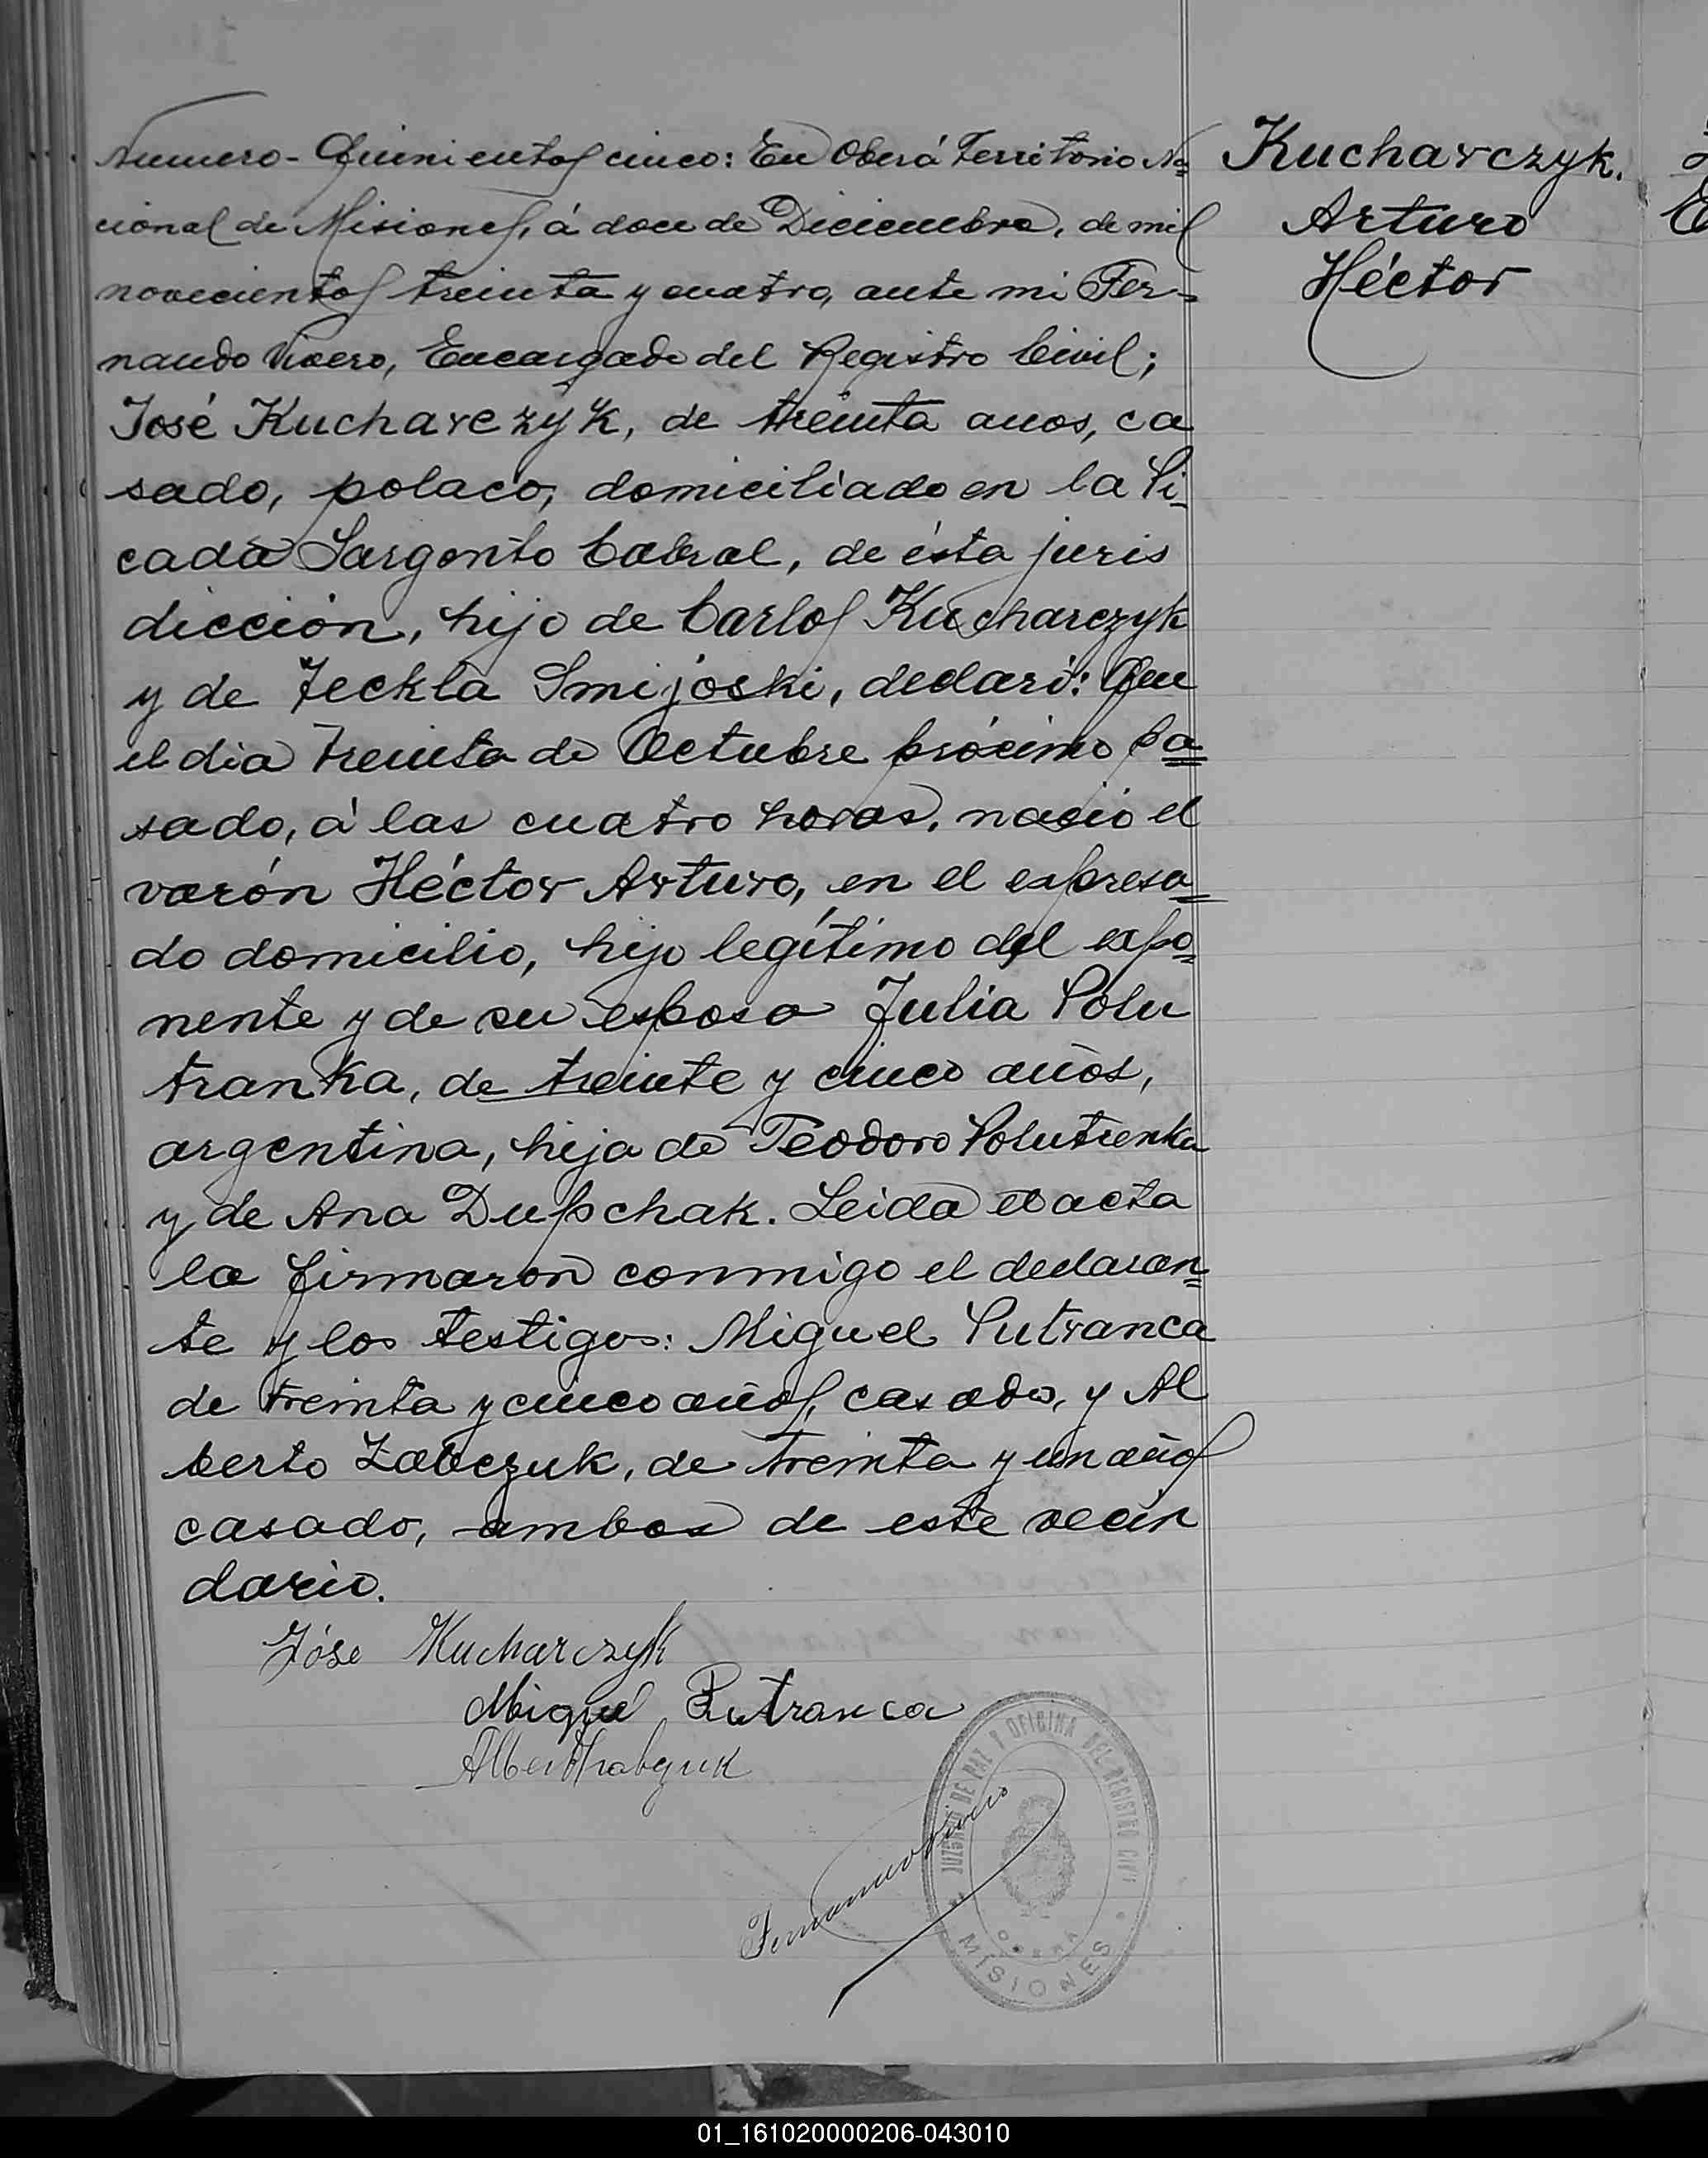 Numero - Quinientos cinco: En Oberá Territorio Na=
cional de Misiones, á doce de Diciembre, de mil
novecientos treinta y cuatro, ante mi Fer=
nando Vivero, Encargado del Registro Civil;
José Kucharczyk, de treinta anos, ca
sado, polaco, domiciliado en la Pi
cada Sargento Cabral, de ésta juris
dicción, hijo de Carlos Kucharczyk
y de Teckla Smijoski, declaró: Que
el dia treinta de Octubre prócimo pa=
sado, á las cuatro horas, nació el
varón Héctor Arturo, en el expresa=
do domicilio, hijo legítimo del expo=
nente y de su esposa Julia Polu
tranka, de treinte y cinco años,
argentina, hija de Teodoro Polutrenka
y de Ana Dupschak. Leida el acta
la firmaron conmigo el declaran=
te y los testigos: Miguel Putranca
de treinta y cinco años, casado, y Al
berto Zabczuk, de treinta y un años
casado, ambos de este vecin
dario.
Kucharczyk.
Arturo
Héctor
Jóse Kucharczyk
Miguel Putranca
Fernando Vivero
JUZGADO DE PAZ Y OFICINA DEL REGISTRO CIVIL
OBERÁ
MISIONES
01_161020000206-043010